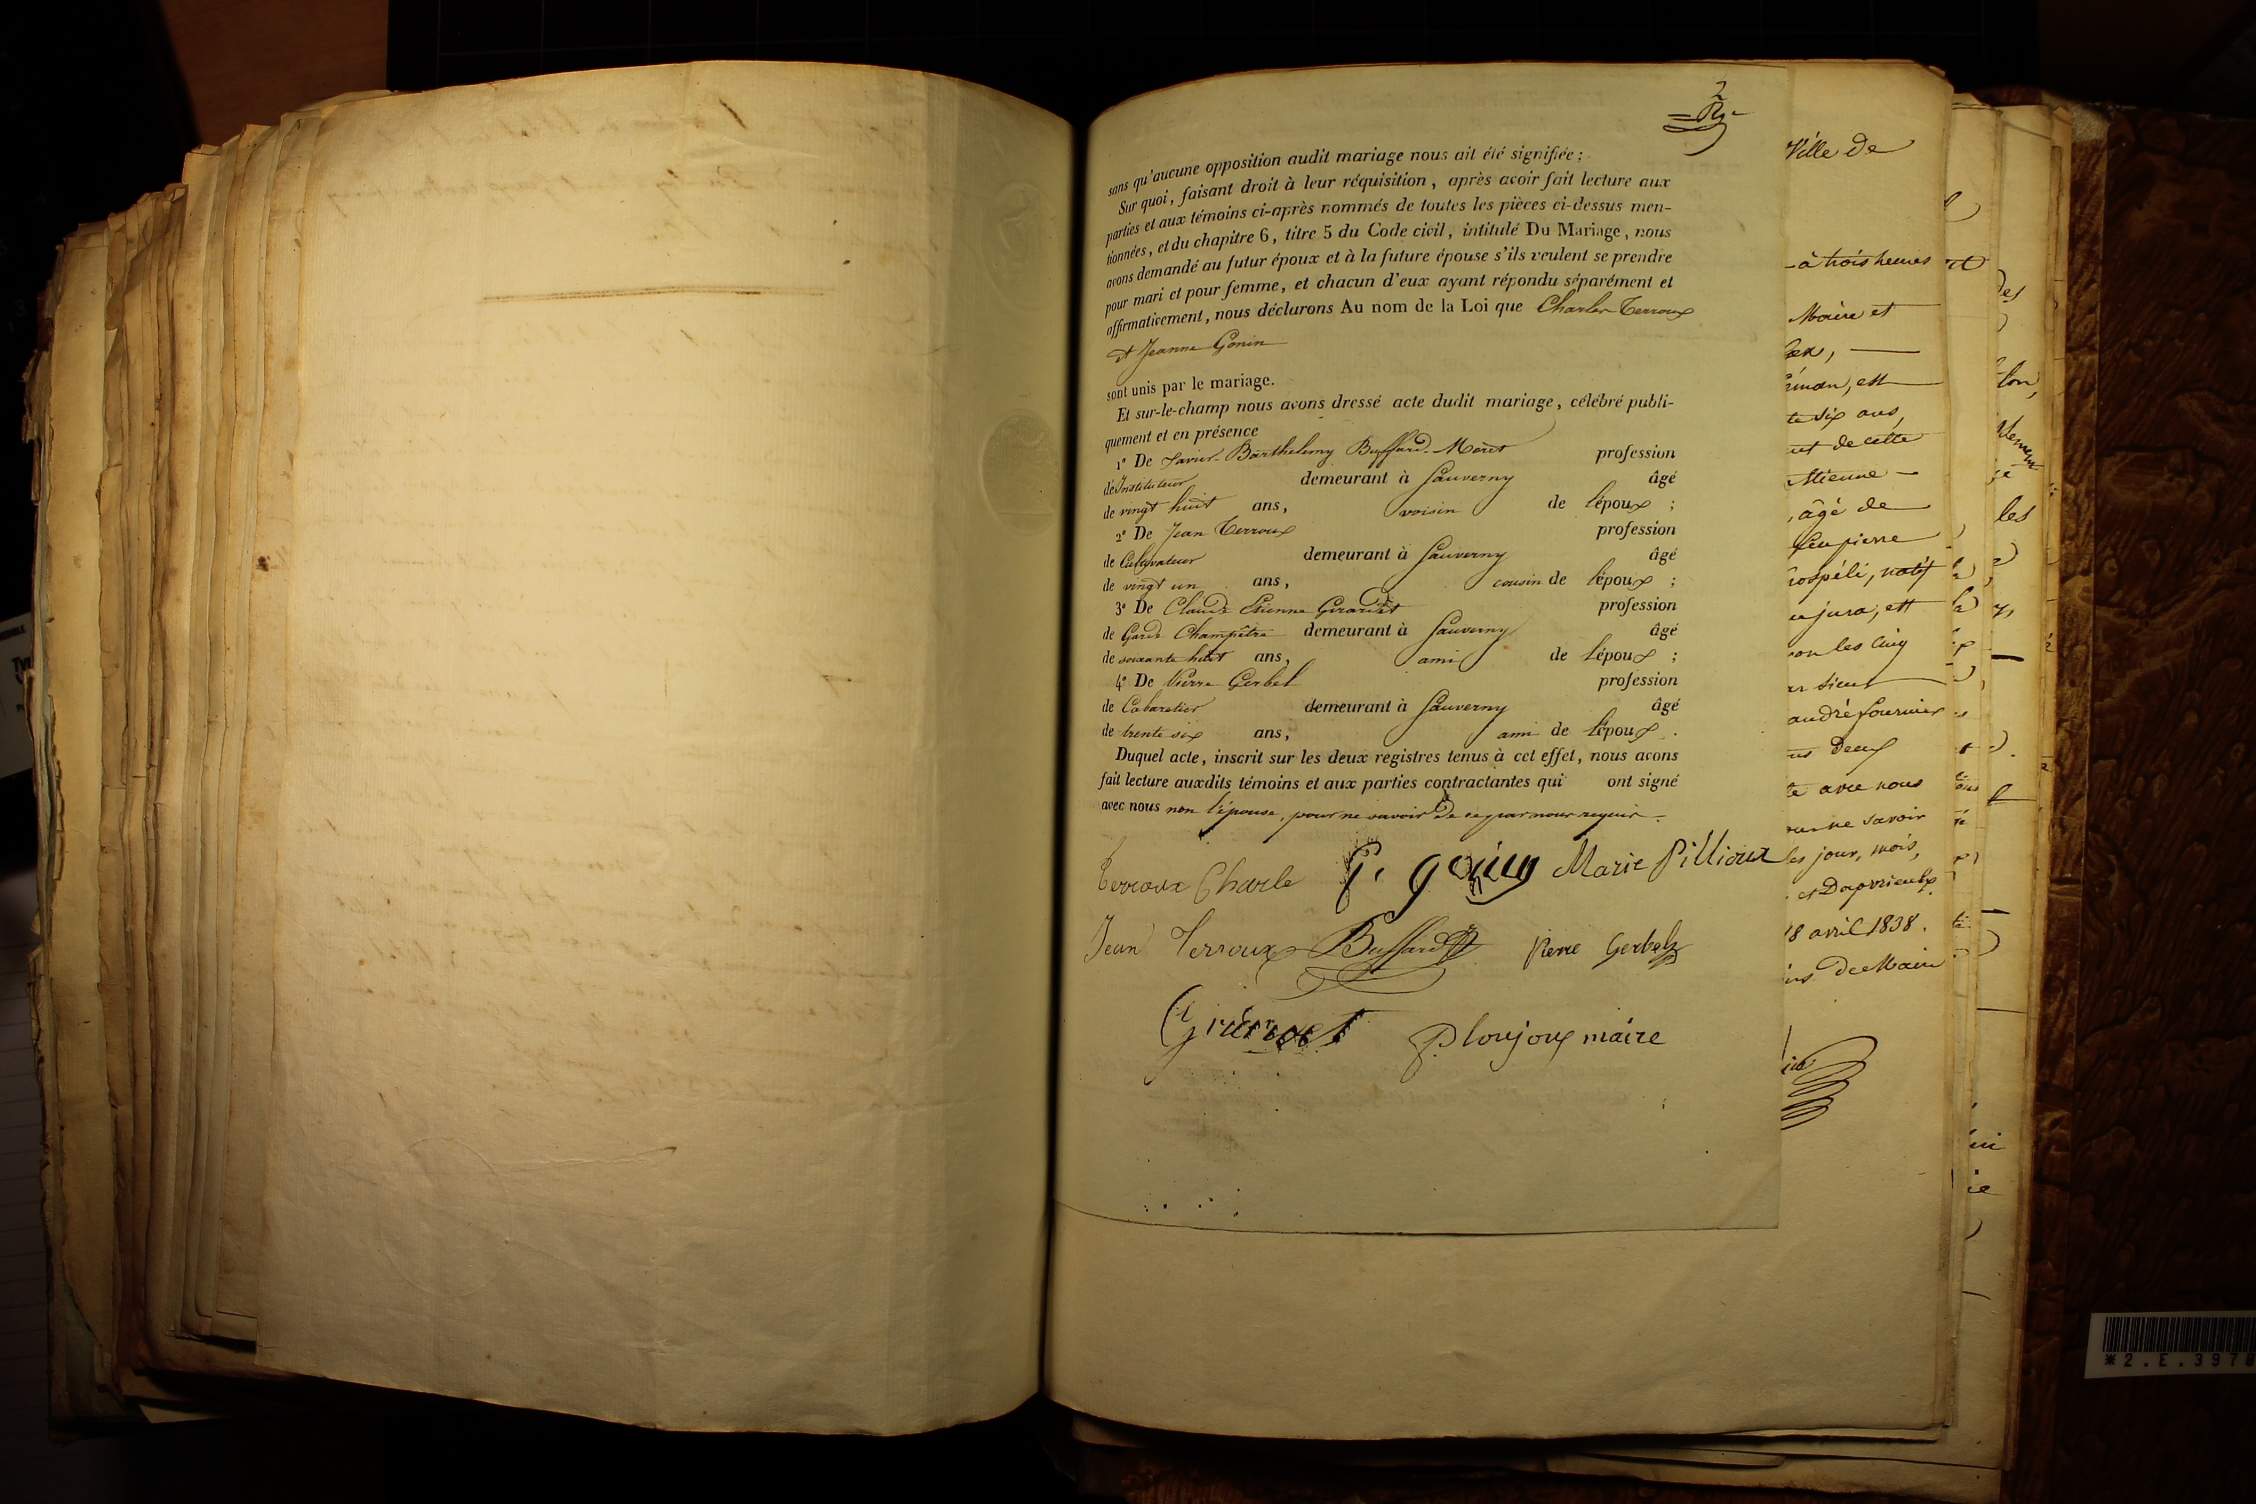 2
sans qu'aucune opposition audit mariage nous ait été signifiée ;
Sur quoi, faisant droit à leur réquisition, après avoir fait lecture aux
parties et aux témoins ci-après nommés de toutes les pièces ci-dessus men-
tionnées, et du chapitre 6, titre 5 du Code civil, intitulé Du Mariage, nous
avons demandé au futur époux et à la future épouse s'ils veulent se prendre
pour mari et pour femme, et chacun d'eux ayant répondu séparément et
affirmativement, nous déclarons Au nom de la Loi que Charles Terroux
et Jeanne Gonin
sont unis par le mariage.
Et sur-le-champ nous avons dressé acte dudit mariage, célébré publi-
quement et en présence
1° De Xavier-Barthelemy Buffard-Moret profession
de Instituteur demeurant à Sauverny âgé
de vingt huit ans, voisin de l'époux ;
2° De Jean Terroux profession
de Cultivateur demeurant à Sauverny âgé
de vingt un ans, cousin de l'époux ;
3° De Claude Etienne profession
de Garde Champêtre demeurant à Sauverny âgé
de soixante huit ans, ami de l'époux ;
4° De Pierre Gerbel profession
de Cabaretier demeurant à Sauverny âgé
de trente six ans, ami de l'époux .
Duquel acte, inscrit sur les deux registres tenus à cet effet, nous avons
fait lecture auxdits témoins et aux parties contractantes qui ont signé
avec nous non l'épouse, pour ne savoir de ce par nous requis.
Terroux Charle P. gonin Marie Pillioux
Jean Terroux Buffard Pierre Gerbel
P loujoux maire
Ville de
à trois heures
Maire et
est
te six ans,
et de cette
Etienne
, âgé de
feu pierre
natif
jura, est
les cinq
sieur
andré fournier
deux
te avec nous
ne savoir
les jour, mois,
18 avril 1838.
de Maire
les
*2.E.3978